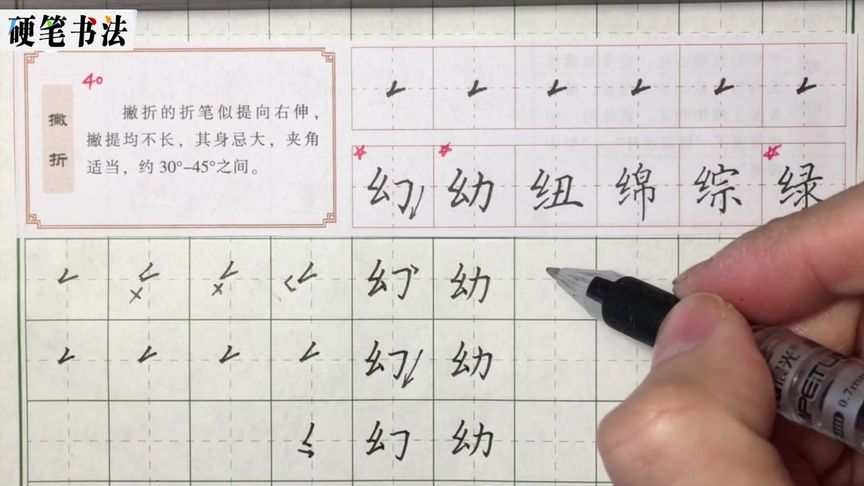 硬笔书法
40
撇折
撇折的折笔似提向右伸，
撇提均不长，其身忌大，夹角
适当，约30°-45°之间。
幻幼纽绵综绿
幻幼
幻幼
幻幼
0.7mm